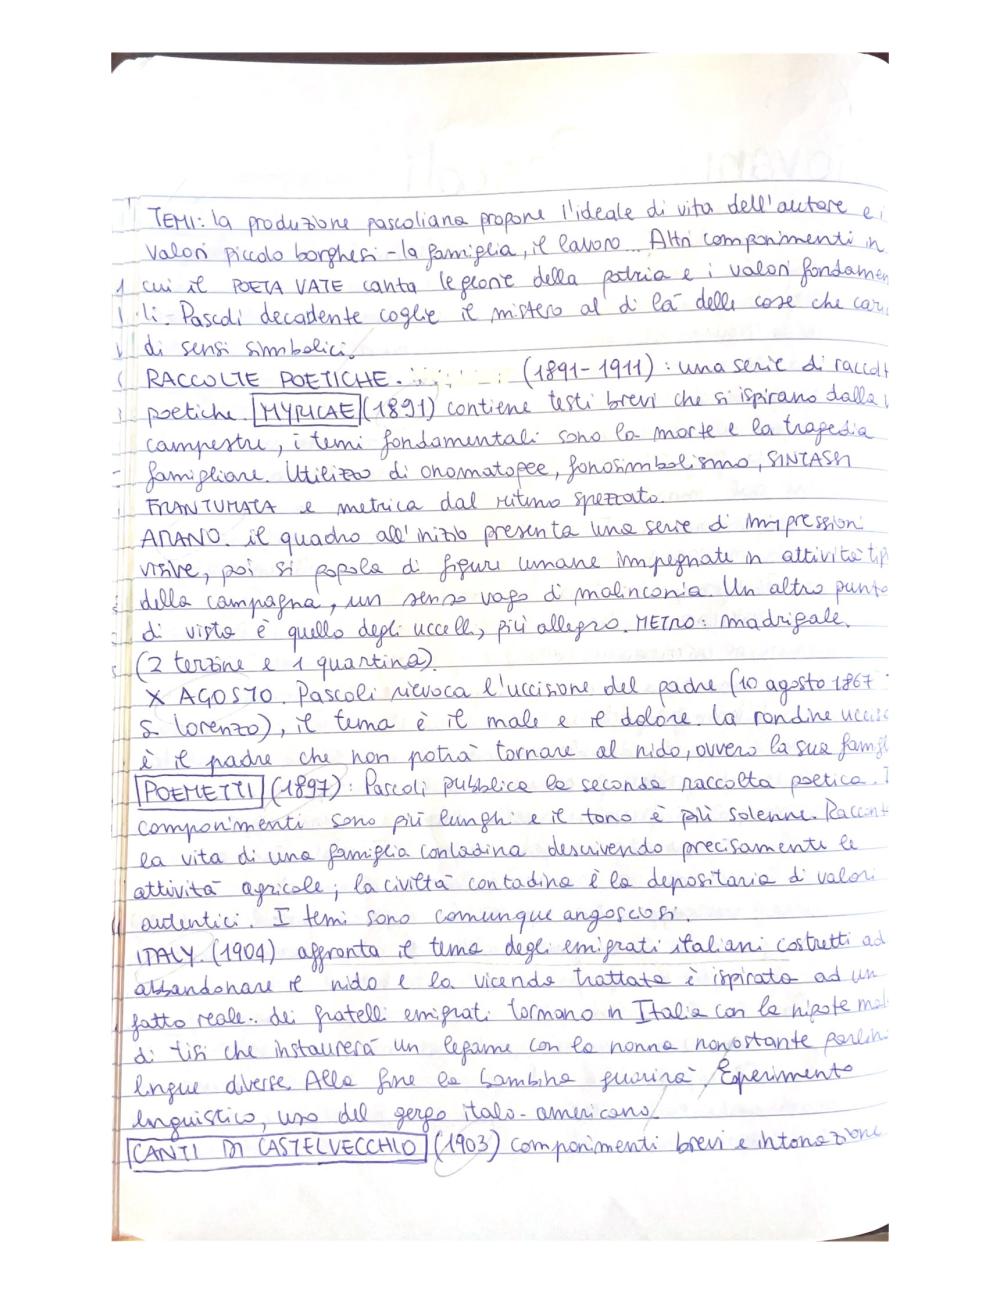 TEMI: la produzione pascoliana propone l'ideale di vita dell'autore e i
valori piccolo borghesi - la famiglia, il lavoro... Altri componimenti in
cui il POETA VATE canta le glorie della patria e i valori fondamen
li. Pascoli decadente coglie il mistero al di là delle cose che cari
di sensi simbolici.
RACCOLTE POETICHE. (1891-1911): una serie di raccolt
poetiche. MYRICAE (1891) contiene testi brevi che si ispirano dalla
campestre, i temi fondamentali sono la morte e la tragedia
famigliare. Utilizzo di onomatopee, fonosimbolismo, SINTASSI
FRANTUMATA e metrica dal ritmo spezzato.
ARANO. il quadro all'inizio presenta una serie di impressioni
visive, poi si popola di figure umane impegnate in attività tip
della campagna, un senso vago di malinconia. Un altro punto
di vista è quello degli uccelli, più allegro. METRO: madrigale.
(2 terzine e 1 quartina).
X AGOSTO. Pascoli rievoca l'uccisione del padre (10 agosto 1867
S. Lorenzo), il tema è il male e il dolore. la rondine uccisa
è il padre che non potrà tornare al nido, ovvero la sua famigl
POEMETTI (1897): Pascoli pubblica la seconda raccolta poetica. I
componimenti sono più lunghi e il tono è più solenne. Raccont
la vita di una famiglia contadina descrivendo precisamente le
attività agricole; la civiltà contadina è la depositaria di valori
autentici. I temi sono comunque angosciosi.
ITALY. (1904) affronta il tema degli emigrati italiani costretti ad
abbandonare il nido e la vicenda trattata è ispirata ad un
fatto reale: dei fratelli emigrati tornano in Italia con la nipote mal
di tisi che instaurerà un legame con la nonna nonostante parlin
lingue diverse. Alla fine la bambina guarirà. Esperimento
linguistico, uso del gergo italo-americano.
CANTI DI CASTELVECCHIO (1903) componimenti brevi e intonazione